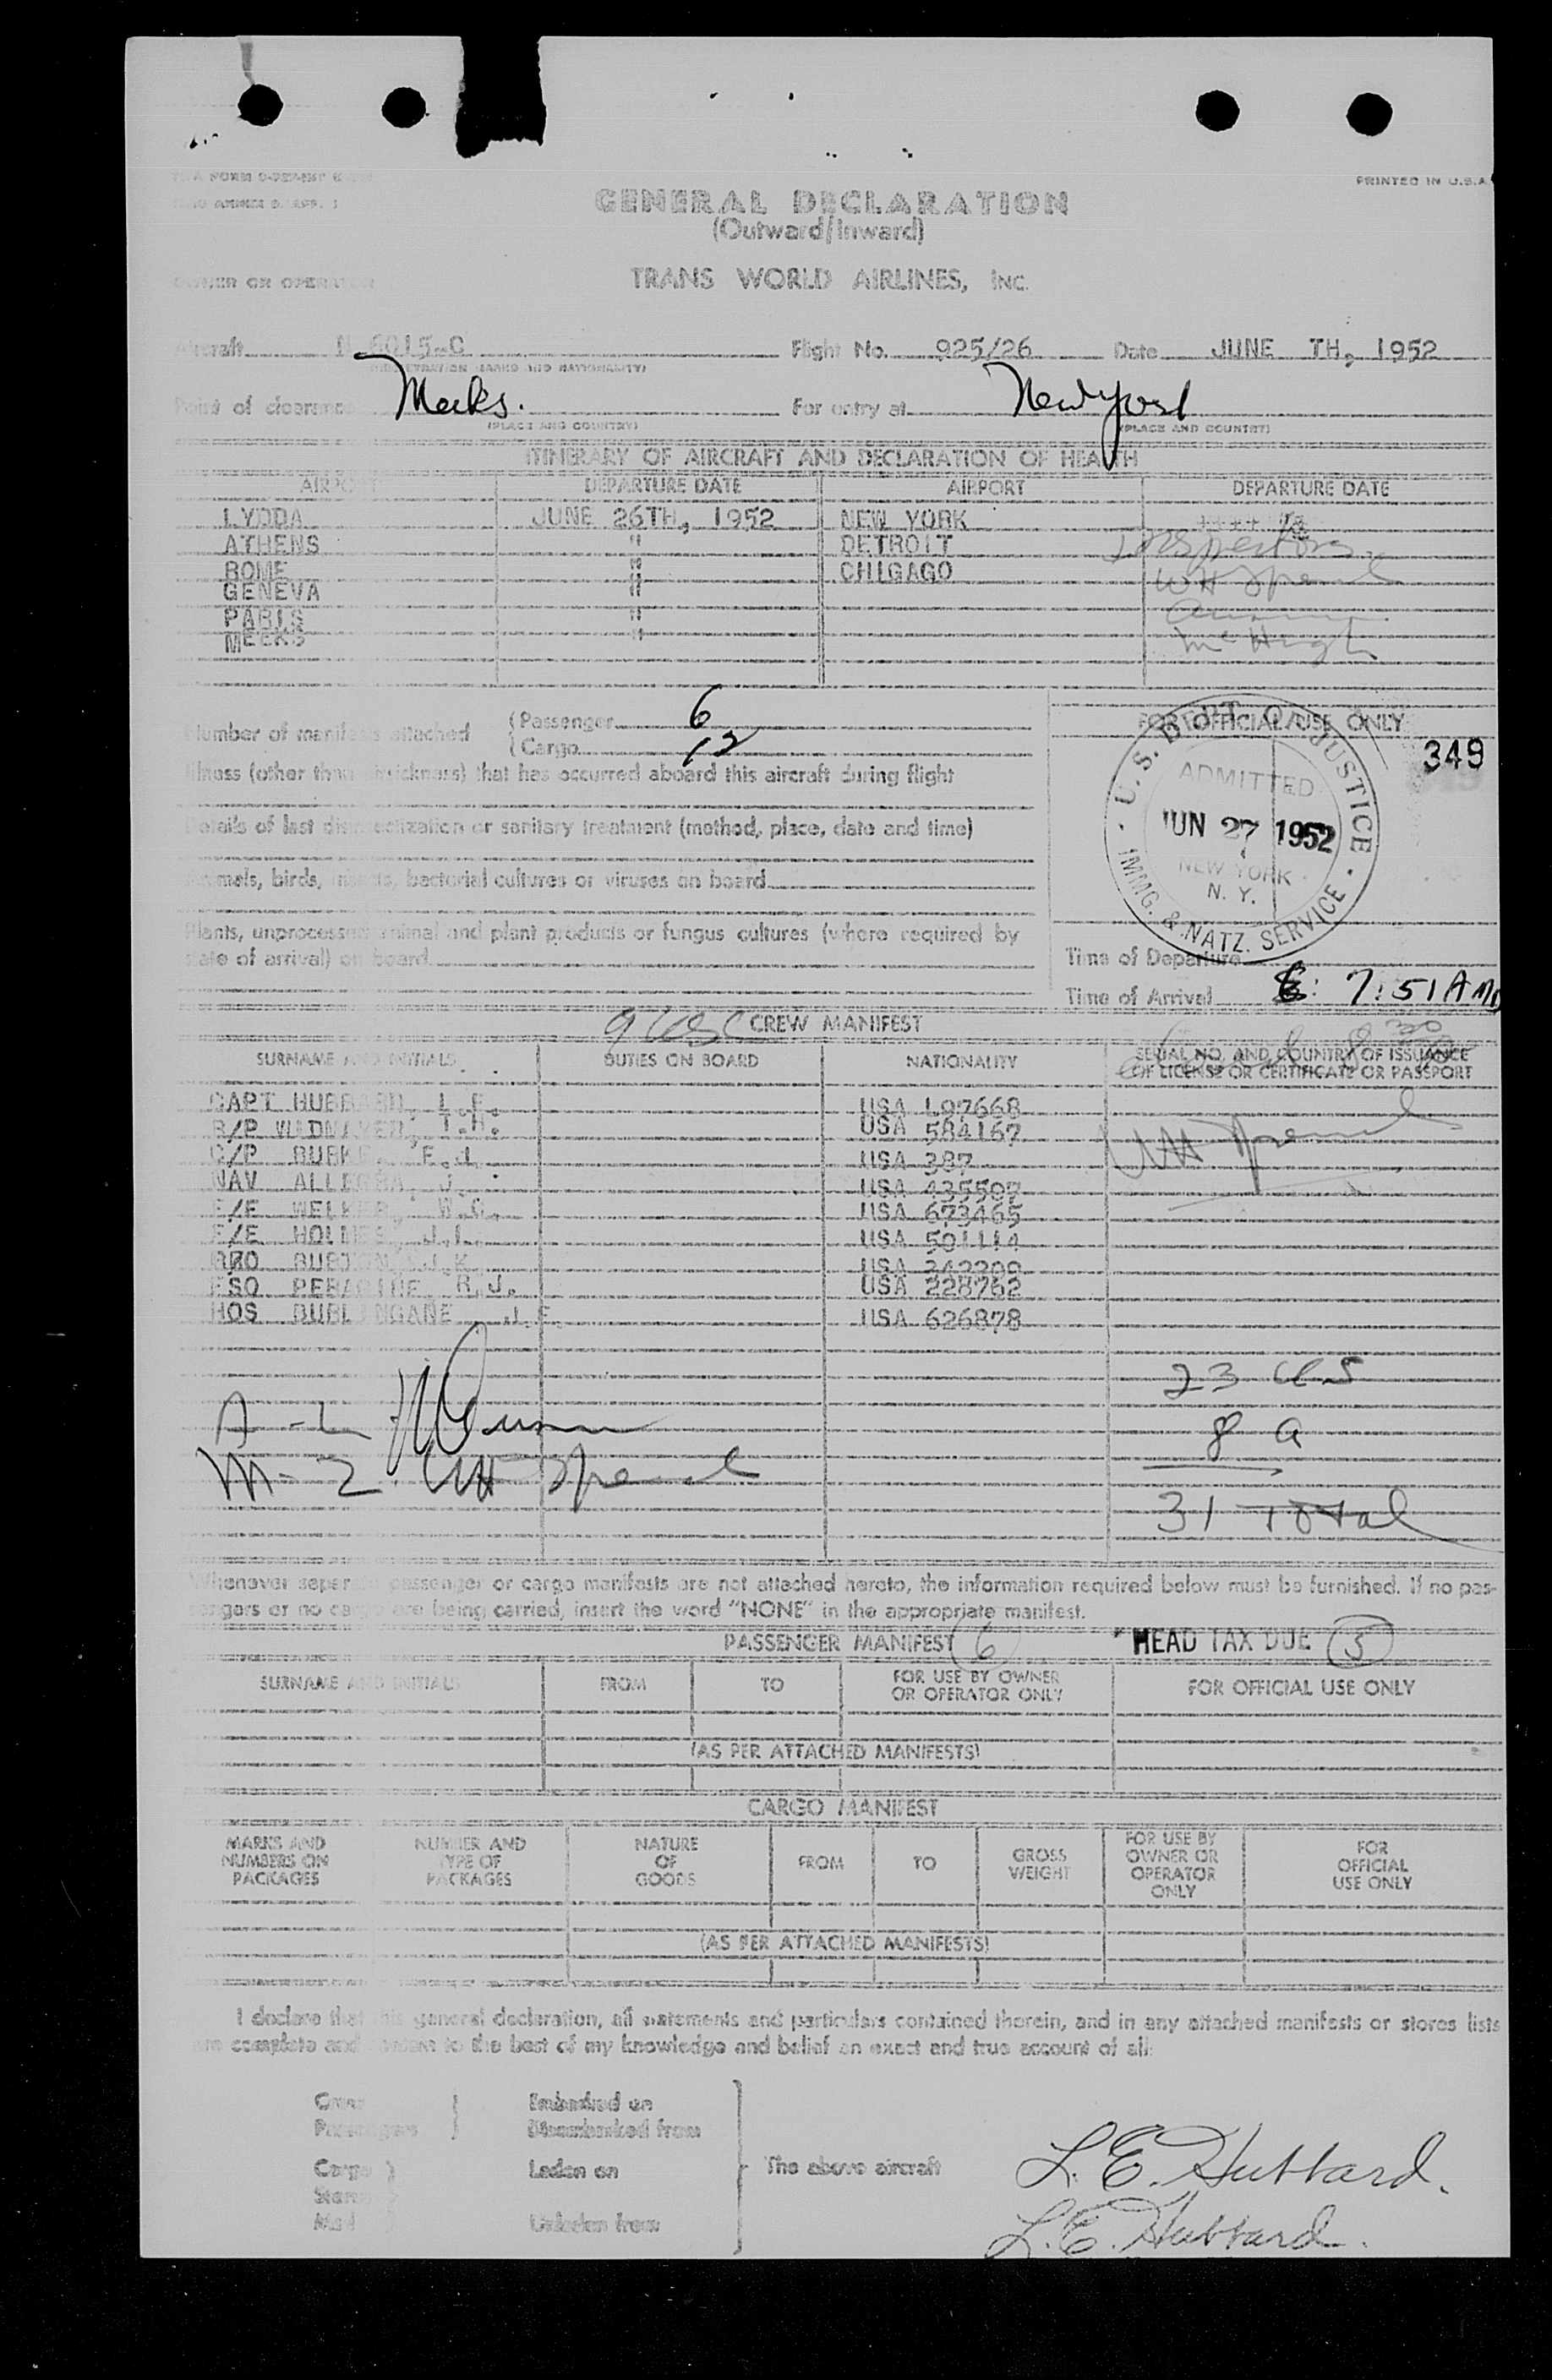 PRINTED IN U.S.A.
GENERAL DECLARATION
(Outward/Inward)
OWNER OR OPERATOR
TRANS WORLD AIRLINES, INC.
Aircraft N 6015-C Flight No. 925/26 Date JUNE TH, 1952
(REGISTRATION MARKS AND NATIONALITY)
Point of clearance Meeks. For entry at New York
(PLACE AND COUNTRY) (PLACE AND COUNTRY)
ITINERARY OF AIRCRAFT AND DECLARATION OF HEALTH
AIRPORT DEPARTURE DATE AIRPORT DEPARTURE DATE
LYDDA JUNE 26TH, 1952 NEW YORK
ATHENS " DETROIT Inspectors
ROME " CHIGAGO
GENEVA "
PARIS " McHugh
MEEKS "
Number of manifests attached (Passenger 6
(Cargo 12
FOR OFFICIAL USE ONLY
349
Illness (other than airsickness) that has occurred aboard this aircraft during flight
U. S. DEPT. OF JUSTICE
ADMITTED
JUN 27 1952
NEW YORK
N. Y.
IMMG. & NATZ. SERVICE
Details of last disinsectization or sanitary treatment (method, place, date and time)
Animals, birds, insects, bacterial cultures or viruses on board
Plants, unprocessed animal and plant products or fungus cultures (where required by
state of arrival) on board
Time of Departure
Time of Arrival 7:51 AM
9 USC CREW MANIFEST
SURNAME AND INITIALS DUTIES ON BOARD NATIONALITY SERIAL NO. AND COUNTRY OF ISSUANCE
OF LICENSE OR CERTIFICATE OR PASSPORT
CAPT HUBBARD, L.E. USA L97668
R/P WIDMAYER, T.H. USA 584167
C/P BURKE, E.J. USA 387
NAV ALLEGRA, J. USA 435507
F/E WELKER, W.G. USA 673465
F/E HOLMES, J.L. USA 501114
RRO BURTON, J.K. USA
FSO PERAGINE, R.J. USA 228762
HOS BURLINGANE J.E. USA 626878
23 USC
8 A
31 Total
Whenever separate passenger or cargo manifests are not attached hereto, the information required below must be furnished. If no pas-
sengers or no cargo are being carried, insert the word "NONE" in the appropriate manifest.
PASSENGER MANIFEST 6 HEAD TAX DUE 5
SURNAME AND INITIALS FROM TO FOR USE BY OWNER
OR OPERATOR ONLY FOR OFFICIAL USE ONLY
(AS PER ATTACHED MANIFESTS)
CARGO MANIFEST
MARKS AND
NUMBERS ON
PACKAGES
NUMBER AND
TYPE OF
PACKAGES
NATURE
OF
GOODS
FROM TO
GROSS
WEIGHT
FOR USE BY
OWNER OR
OPERATOR
ONLY
FOR
OFFICIAL
USE ONLY
(AS PER ATTACHED MANIFESTS)
I declare that this general declaration, all statements and particulars contained therein, and in any attached manifests or stores lists
are complete and correct to the best of my knowledge and belief an exact and true account of all:
Crew Embarked on
Passengers Disembarked from
Cargo Laden on The above aircraft
Stores
Mail Unladen from
L. E. Hubbard.
L. E. Hubbard.